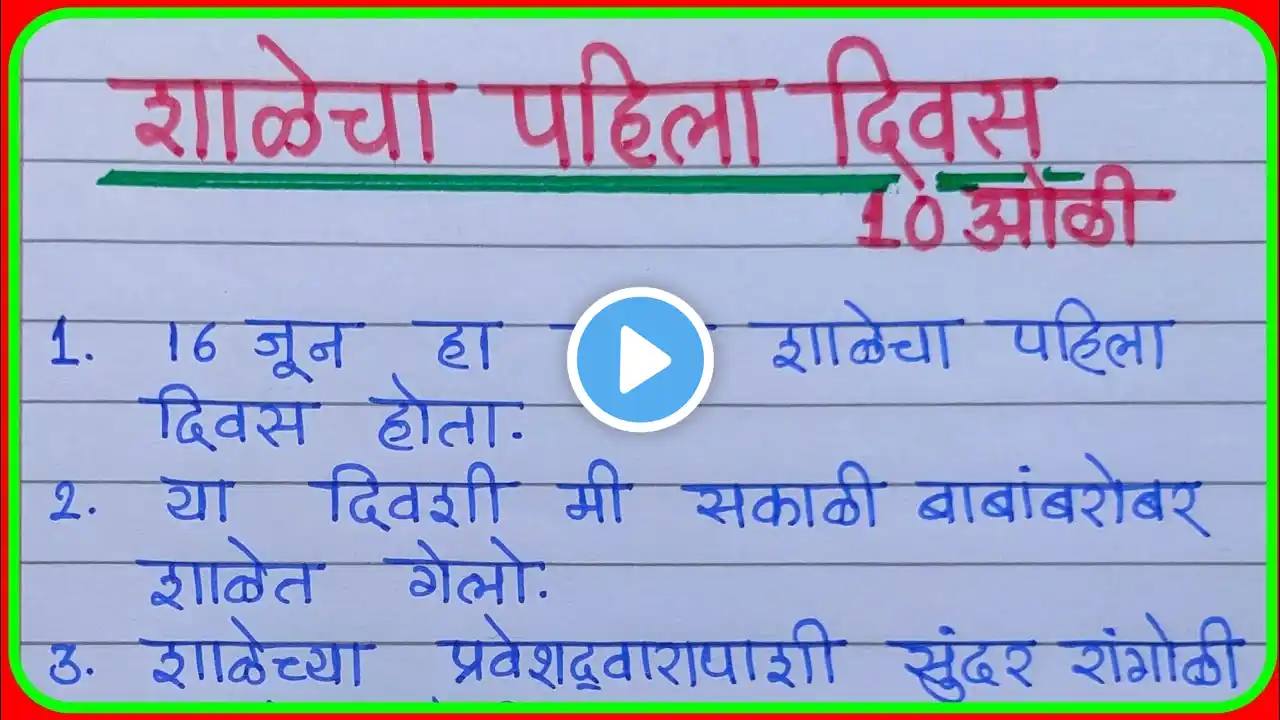 शाळेचा पहिला दिवस
10 ओळी
1. 16 जून हा शाळेचा पहिला
दिवस होता.
2. या दिवशी मी सकाळी बाबांबरोबर
शाळेत गेलो.
3. शाळेच्या प्रवेशद्वारापाशी सुंदर रांगोळी